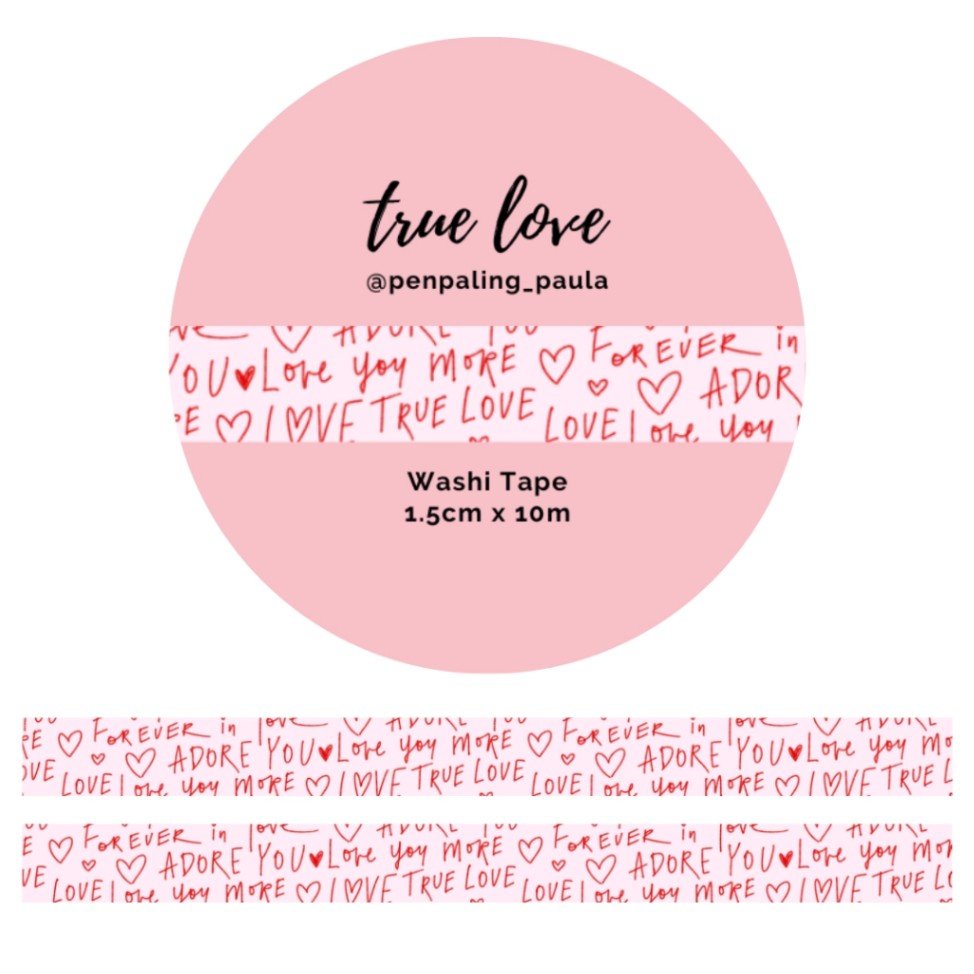 true love
@penpaling_paula
ADORE YOU
YOU♥Love you moRE ♡ FoREVER in
♡ ♡ ADOR
E ♡ LOVE TRUE LOVE LOVE Love you
Washi Tape
1.5cm x 10m
YOU FoREVER in love ADORE YOU FoREVER in love ADORE
RE ♡ ♡ ♡ ADORE YOU♥Love you moRE ♡ ♡ ♡ ADORE YOU♥Love you mo
OVE LOVE Love you moRE ♡ LOVE TRUE LOVE LOVE Love you moRE ♡ LOVE TRUE L
FoREVER in love ADORE YOU FoREVER in love ADORE YOU
E ♡ ♡ ♡ ADORE YOU♥Love you moRE ♡ ♡ ♡ ADORE YOU♥Love you mo
VE LOVE Love you moRE ♡ LOVE TRUE LOVE LOVE Love you moRE ♡ LOVE TRUE LO